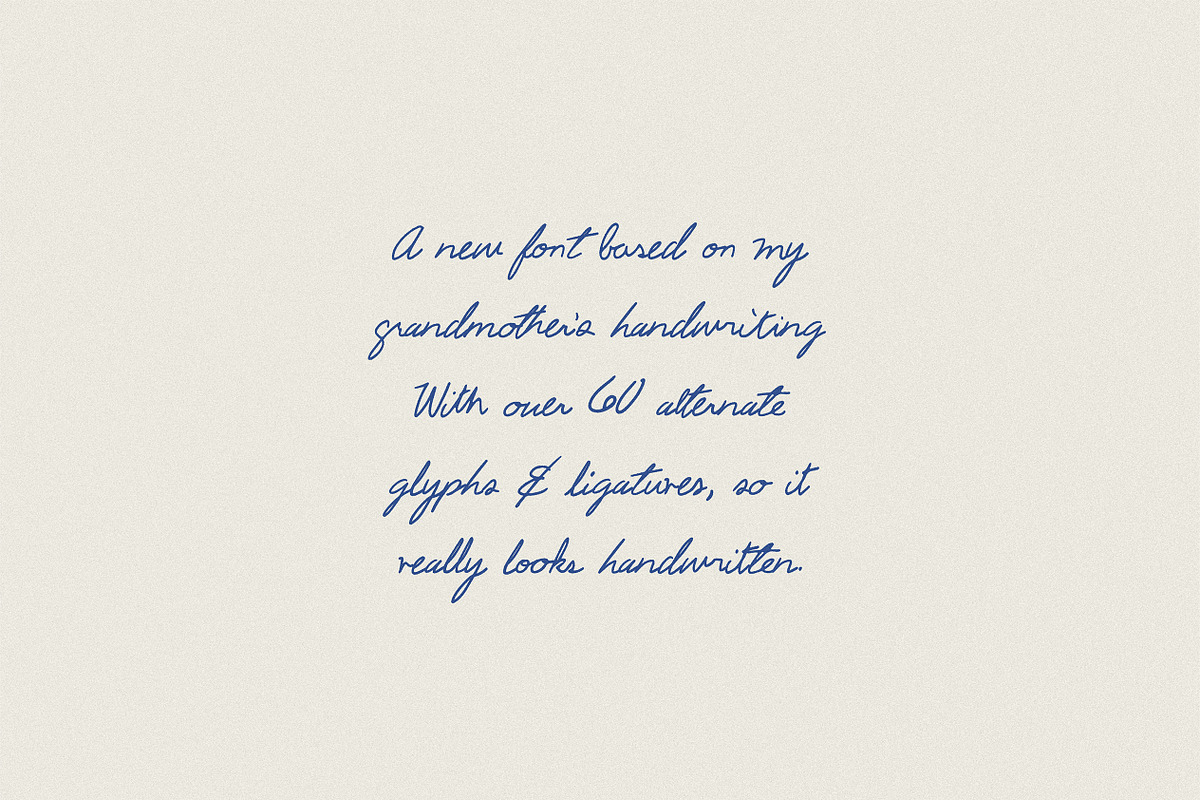 A new font based on my
grandmother's handwriting
With over 60 alternate
glyphs & ligatures, so it
really looks handwritten.